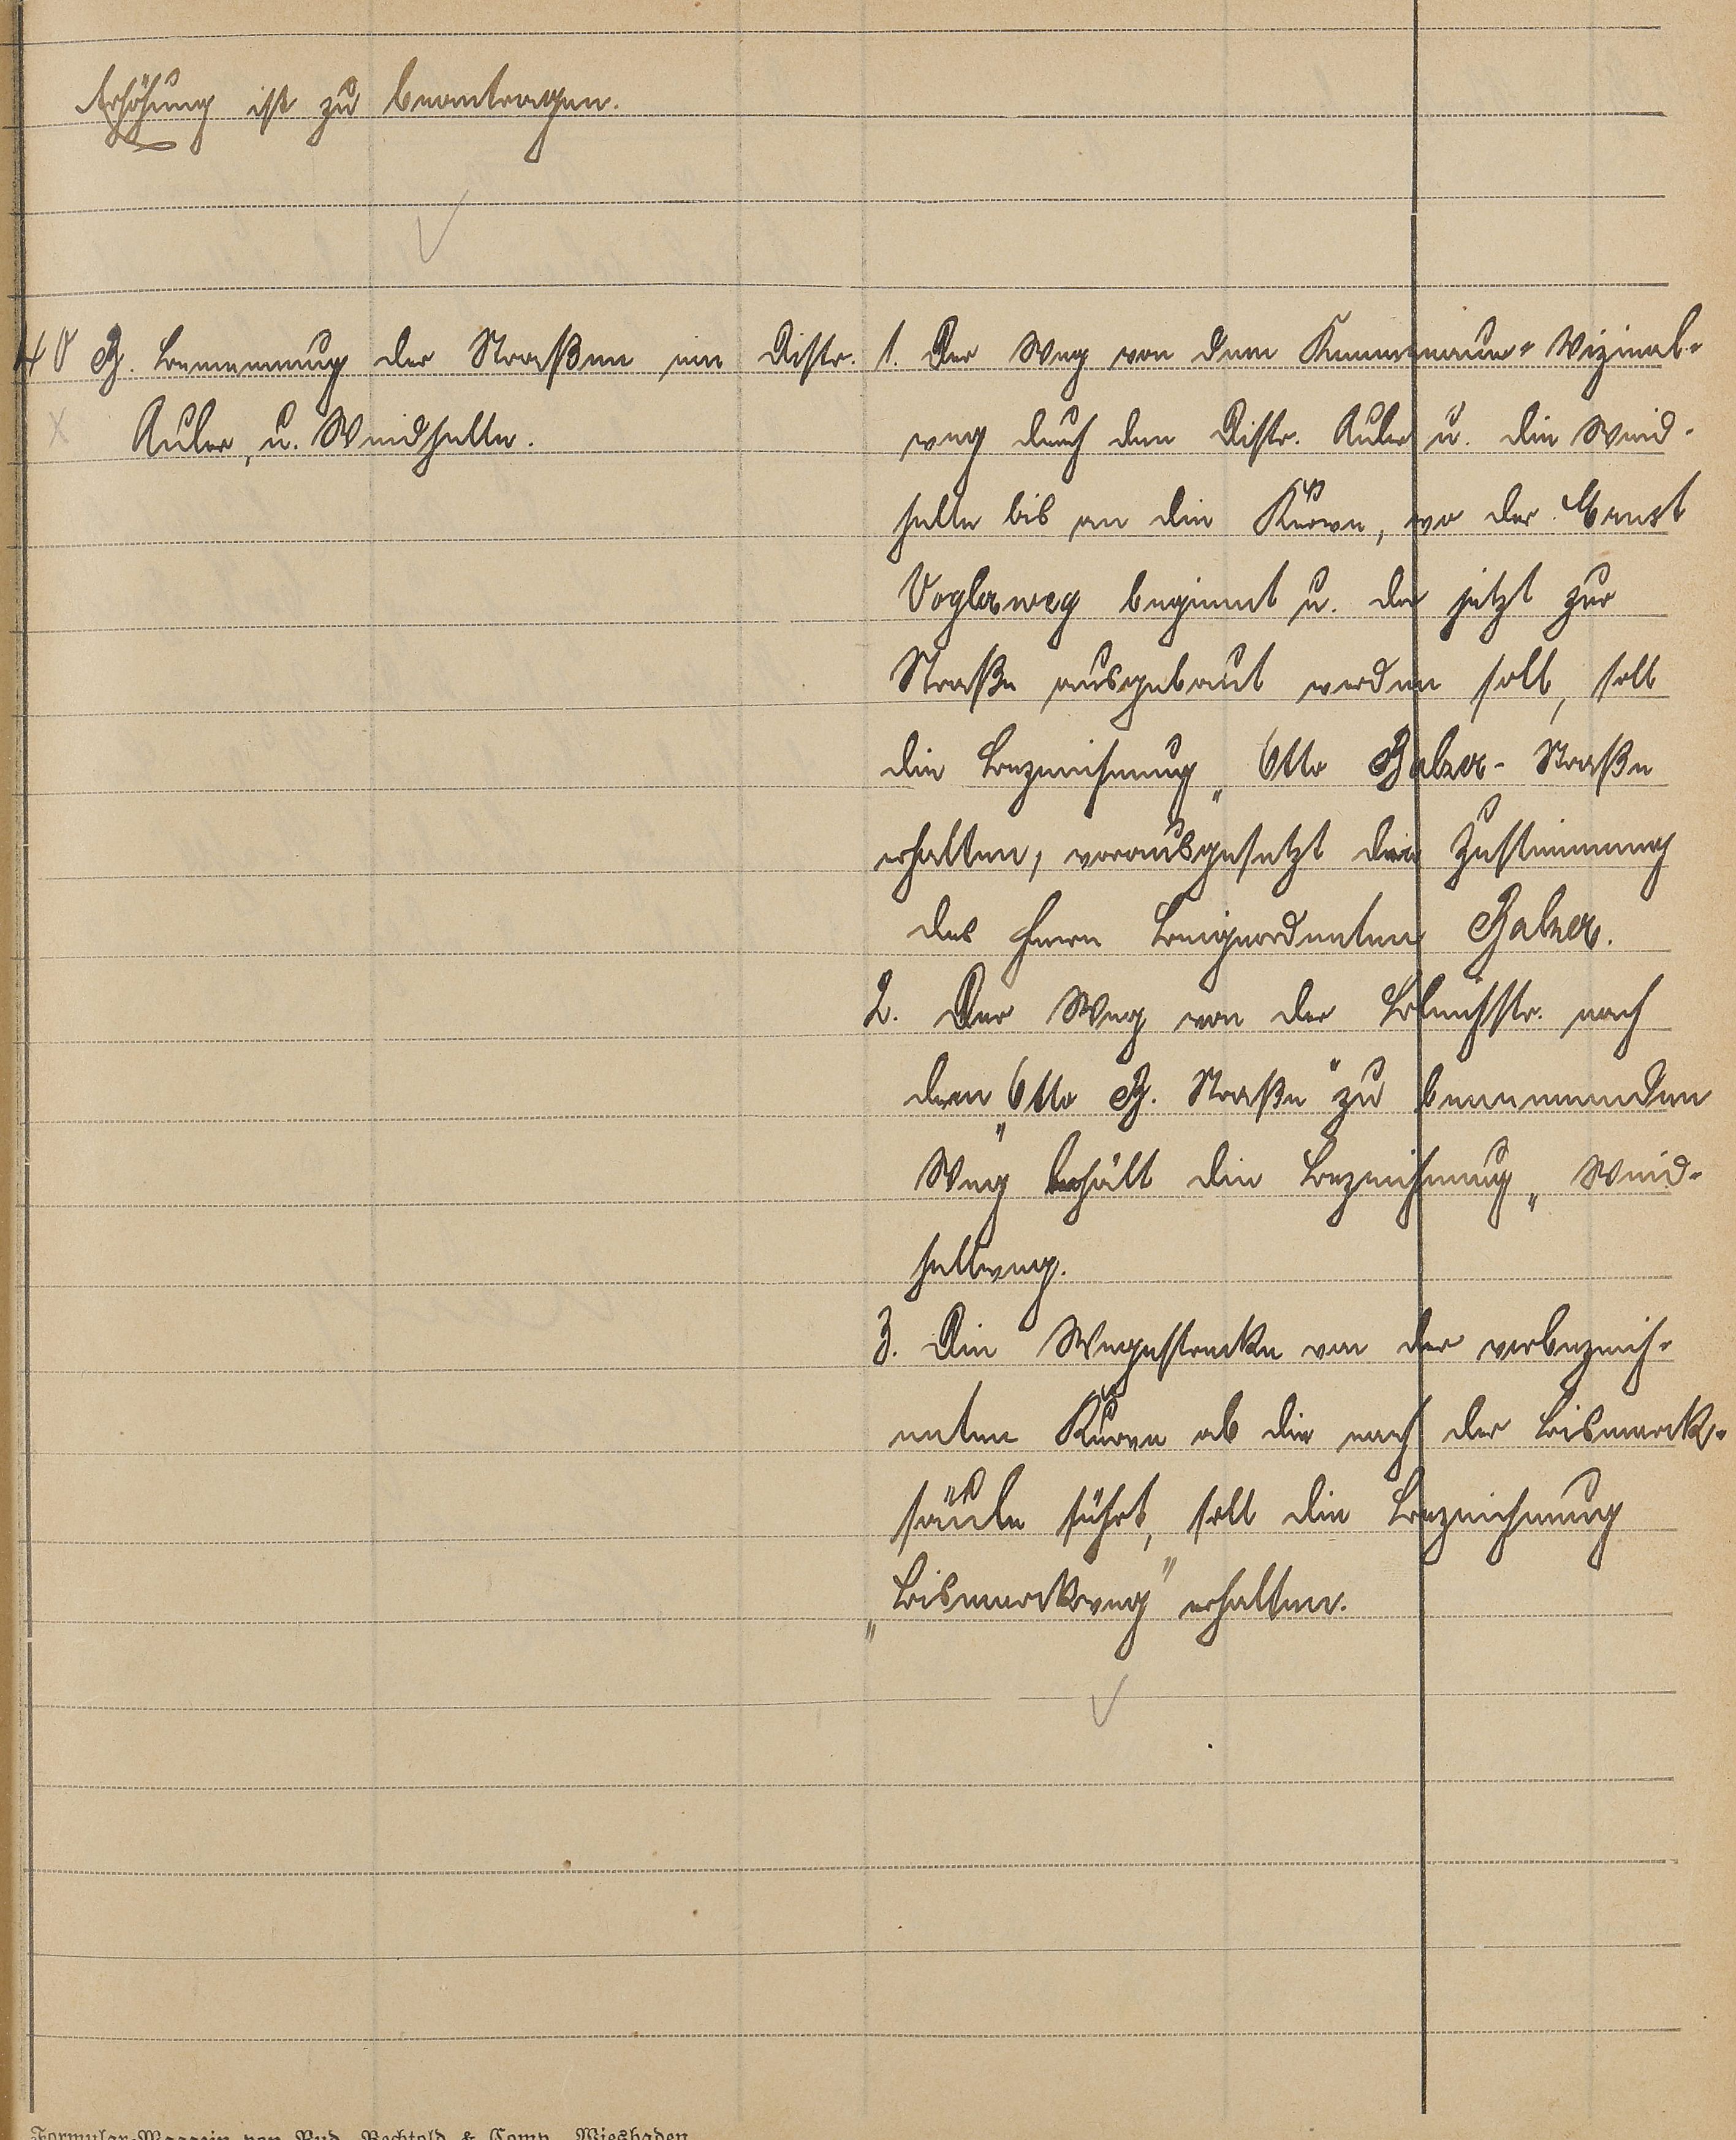 Erhöhung ist zu beantragen.
40 B. Benennung der Straßen im Distr.
Auler, u. Weidhelle.
1. Der Weg von dem Kemmenauer-Vizinal-
weg durch den Distr. Auler u. die Weid-
helle bis an die Kurve, wo der Ernst
Voglerweg beginnt u. der jetzt zur
Straße ausgebaut werden soll, soll
die Bezeichnung „Otto Balzer-Straße
erhalten, vorausgesetzt die Zustimmung
des Herrn Beigeordneten Balzer.
2. Der Weg von der Bleichstr. nach
dem „Otto B. Straße" zu benennenden
Weg behält die Bezeichnung „Weid-
hellweg.
3. Die Wegestrecke von der vorbezeich-
neten Kurve ab die nach der Bismarck-
säule führt, soll die Bezeichnung
„Bismarckweg" erhalten.
Formular-Magazin von Rud. Bechtold & Comp. Wiesbaden